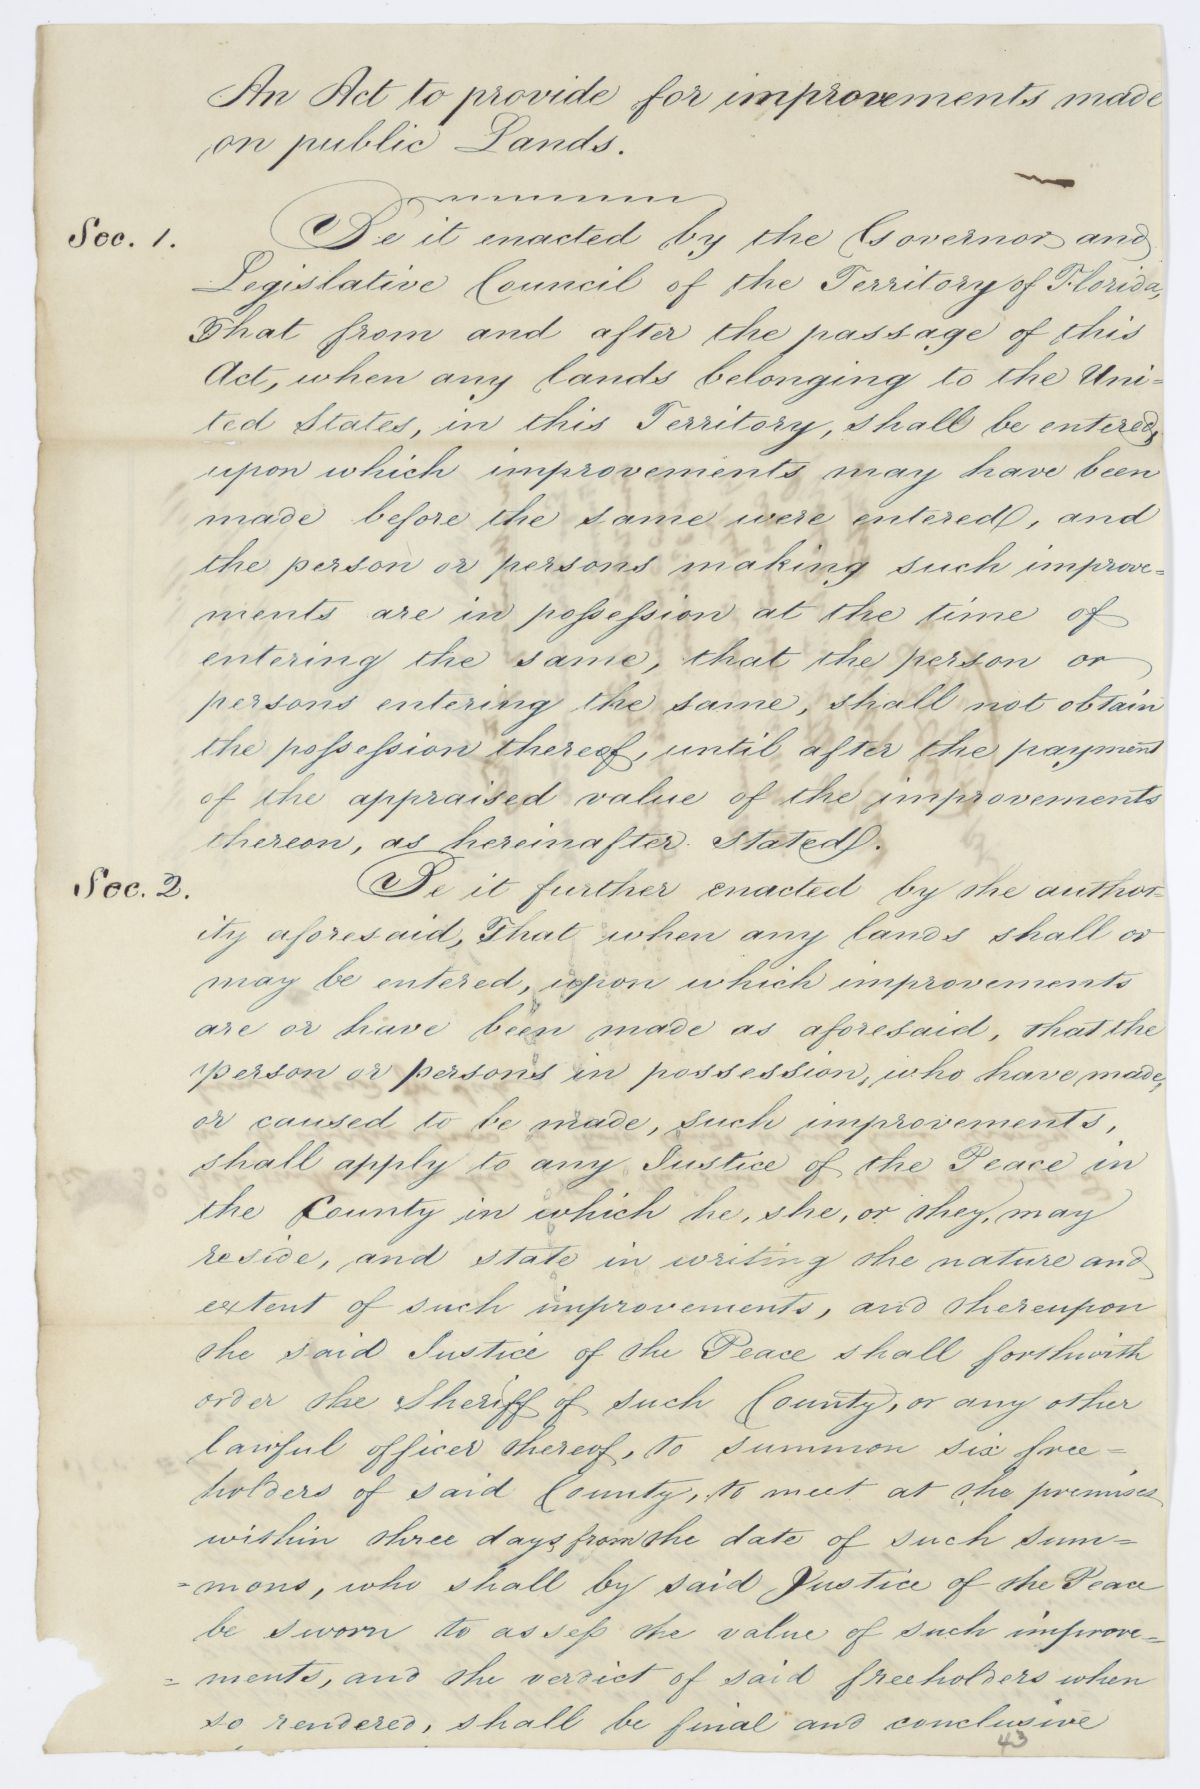 An Act to provide for improvements made
on public Lands.
Sec. 1. Be it enacted by the Governor and
Legislative Council of the Territory of Florida,
That from and after the passage of this
Act, when any lands belonging to the Uni=
ted States, in this Territory, shall be entered,
upon which improvements may have been
made before the same were entered, and
the person or persons making such improve=
ments are in possession at the time of
entering the same, that the person or
persons entering the same, shall not obtain
the possession thereof, until after the payment
of the appraised value of the improvements
thereon, as hereinafter stated.
Sec. 2. Be it further enacted by the author=
ity aforesaid, That when any lands shall or
may be entered, upon which improvements
are or have been made as aforesaid, that the
person or persons in possession, who have made,
or caused to be made, such improvements,
shall apply to any Justice of the Peace in
the County in which he, she, or they, may
reside, and state in writing the nature and
extent of such improvements, and thereupon
the said Justice of the Peace shall forthwith
order the Sheriff of such County, or any other
lawful officer thereof, to summon six free=
holders of said County, to meet at the premises
within three days from the date of such sum=
=mons, who shall by said Justice of the Peace
be sworn to assess the value of such improve=
=ments, and the verdict of said freeholders when
so rendered, shall be final and conclusive
43